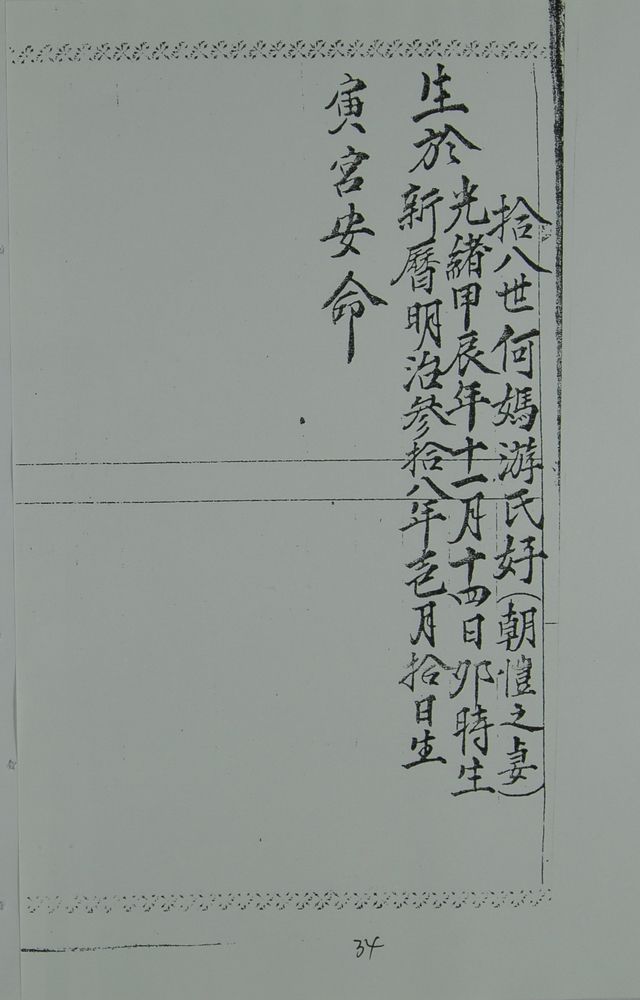 拾八世何媽游氏好(朝愷之妻)
生於
光緒甲辰年十一月十四日卯時生
新曆明治參拾八年壱月拾日生
寅宮安命
34